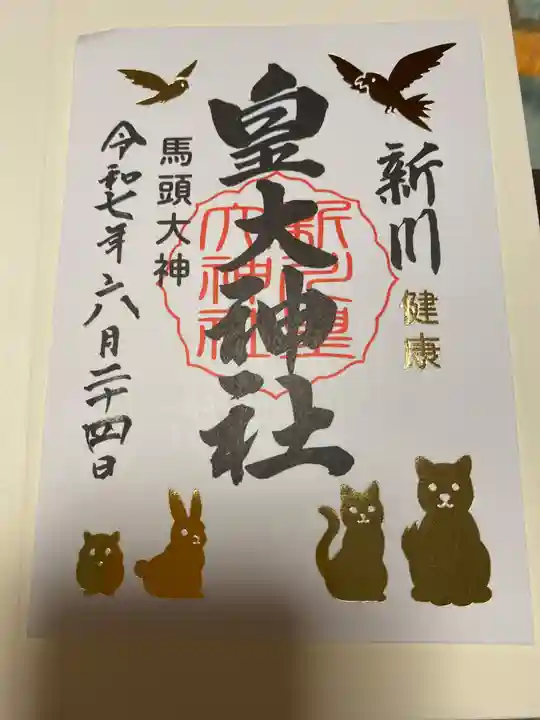 新川
健康
皇大神社
新川皇
大神社
馬頭大神
令和七年六月二十四日